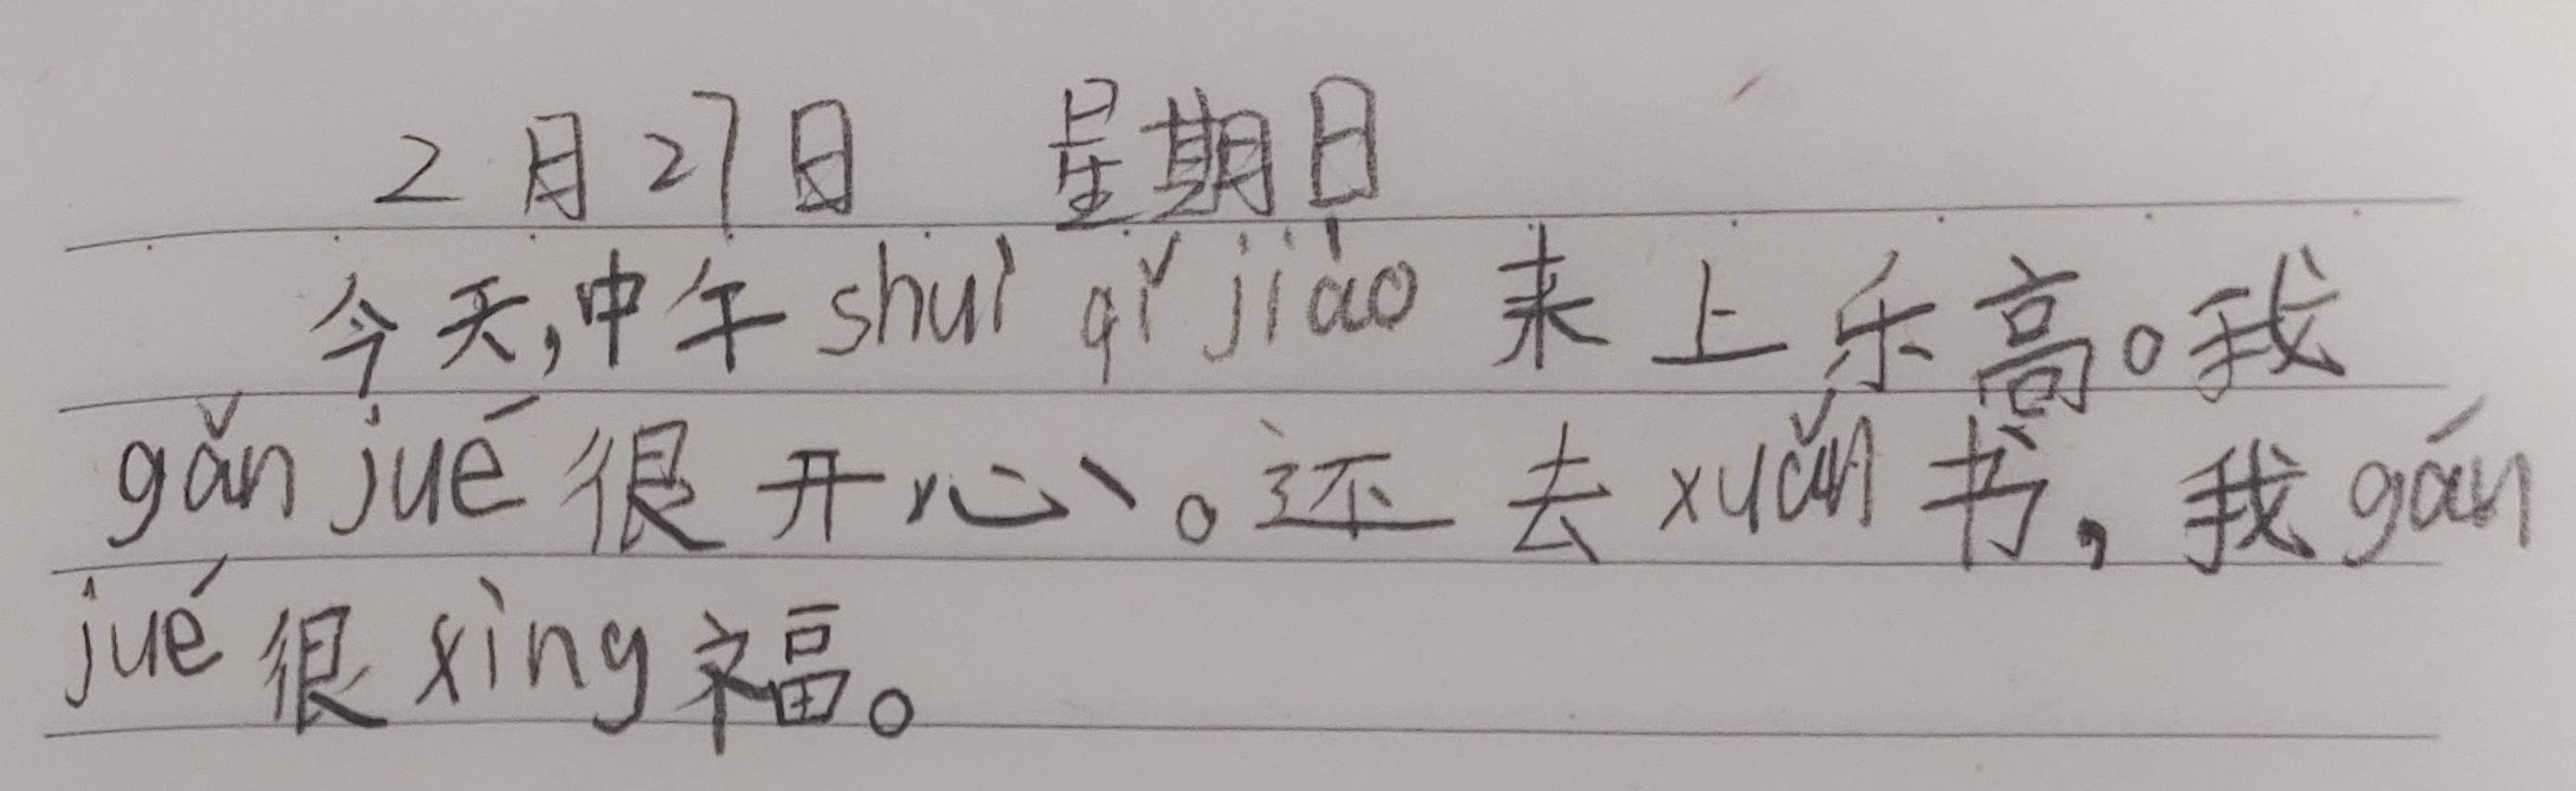 2月27日 星期日
今天,中午shuì qǐ jiào来上乐高。我
gǎn jué很开心。还去xuǎn书,我gán
jué很xìng福。